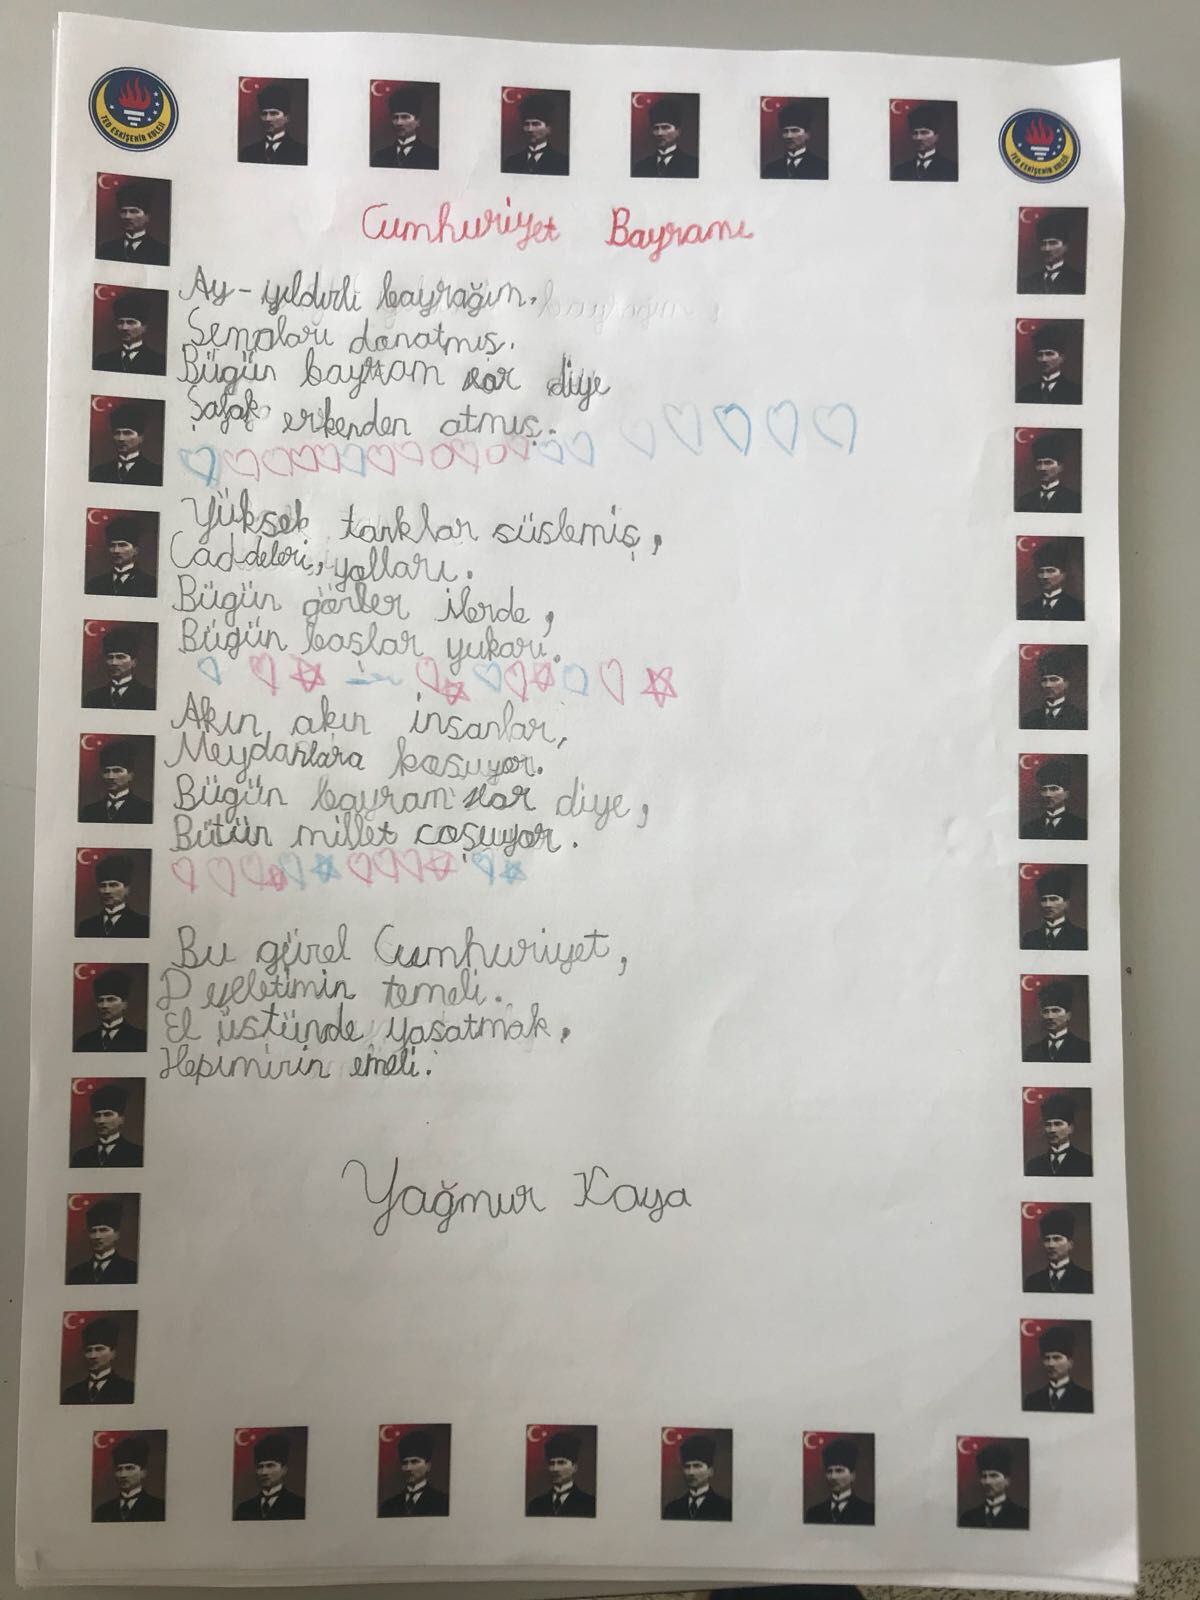 TED ESKİŞEHİR KOLEJİ
TED ESKİŞEHİR KOLEJİ
Cumhuriyet Bayramı
Ay-yıldızlı bayrağım.
Semaları donatmış.
Bügün bayram var diye
Şafak erkenden atmış.
Yüksek tanklar süslemiş,
Caddeleri, yolları.
Bügün gözler ilerde,
Bügün başlar yukarı.
Akın akın insanlar,
Meydanlara koşuyor.
Bügün bayram var diye,
Bütün millet coşuyor.
Bu güzel Cumhuriyet,
Devletimin temeli.
El üstünde yaşatmak,
Hepimizin emeli.
Yağmur Kaya